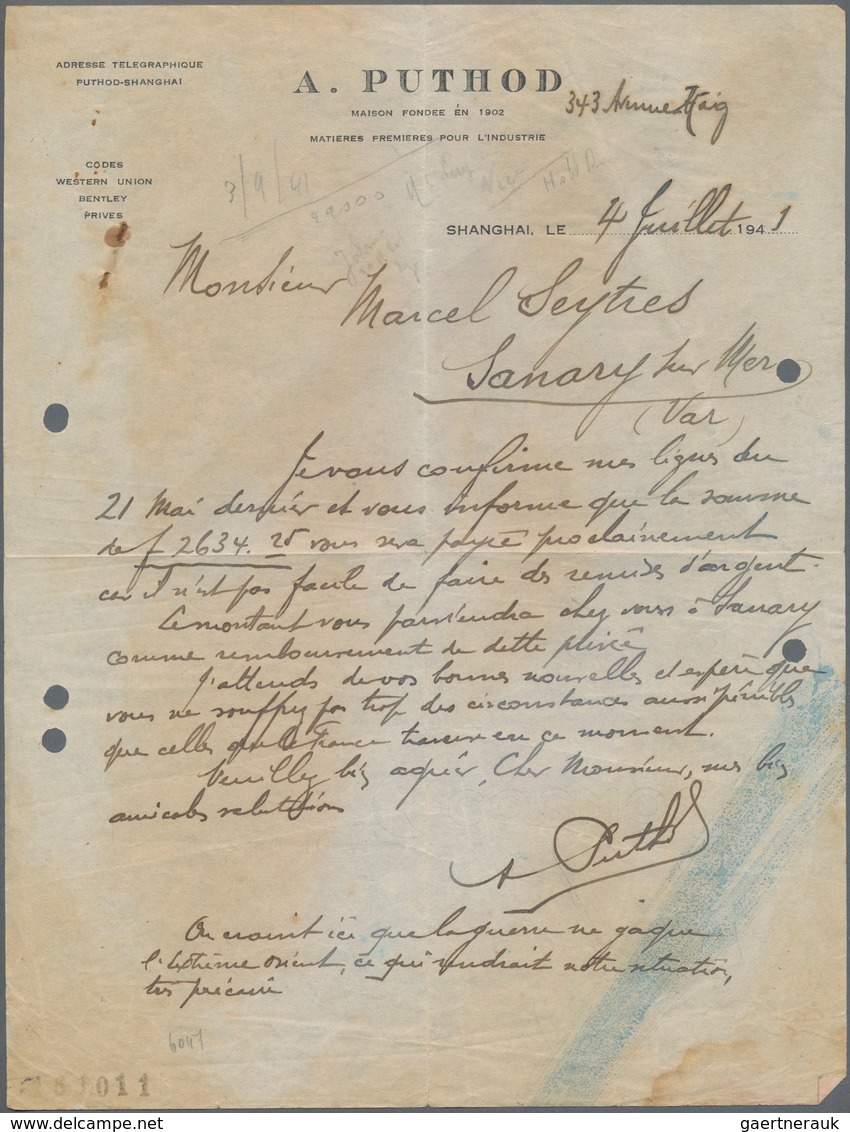 ADRESSE TELEGRAPHIQUE
PUTHOD-SHANGHAI
A. PUTHOD
MAISON FONDEE EN 1902
MATIERES PREMIERES POUR L'INDUSTRIE
343 Avenue Haig
CODES
WESTERN UNION
BENTLEY
PRIVES
3/9/41
22000
SHANGHAI, LE 4 Juillet 1941
Monsieur
Marcel Seytres
Sanary sur Mer
(Var)
Je vous confirme mes lignes du
21 Mai dernier et vous informe que la somme
de f 2634.25 vous sera payée prochainement
car il n'est pas facile de faire des remises d'argent.
Ce montant vous parviendra chez vous à Sanary
comme remboursement de dette privée
J'attends de vos bonnes nouvelles et espère que
vous ne souffrez pas trop des circonstances aussi pénibles
que celles que la France traverse en ce moment.
Veuillez bien agréer, Cher Monsieur, mes bien
amicales salutations
A Puthod
On craint ici que la guerre ne gagne
l'Extrême orient, ce qui rendrait notre situation,
très précaire
6047
1011
gaertnerauk